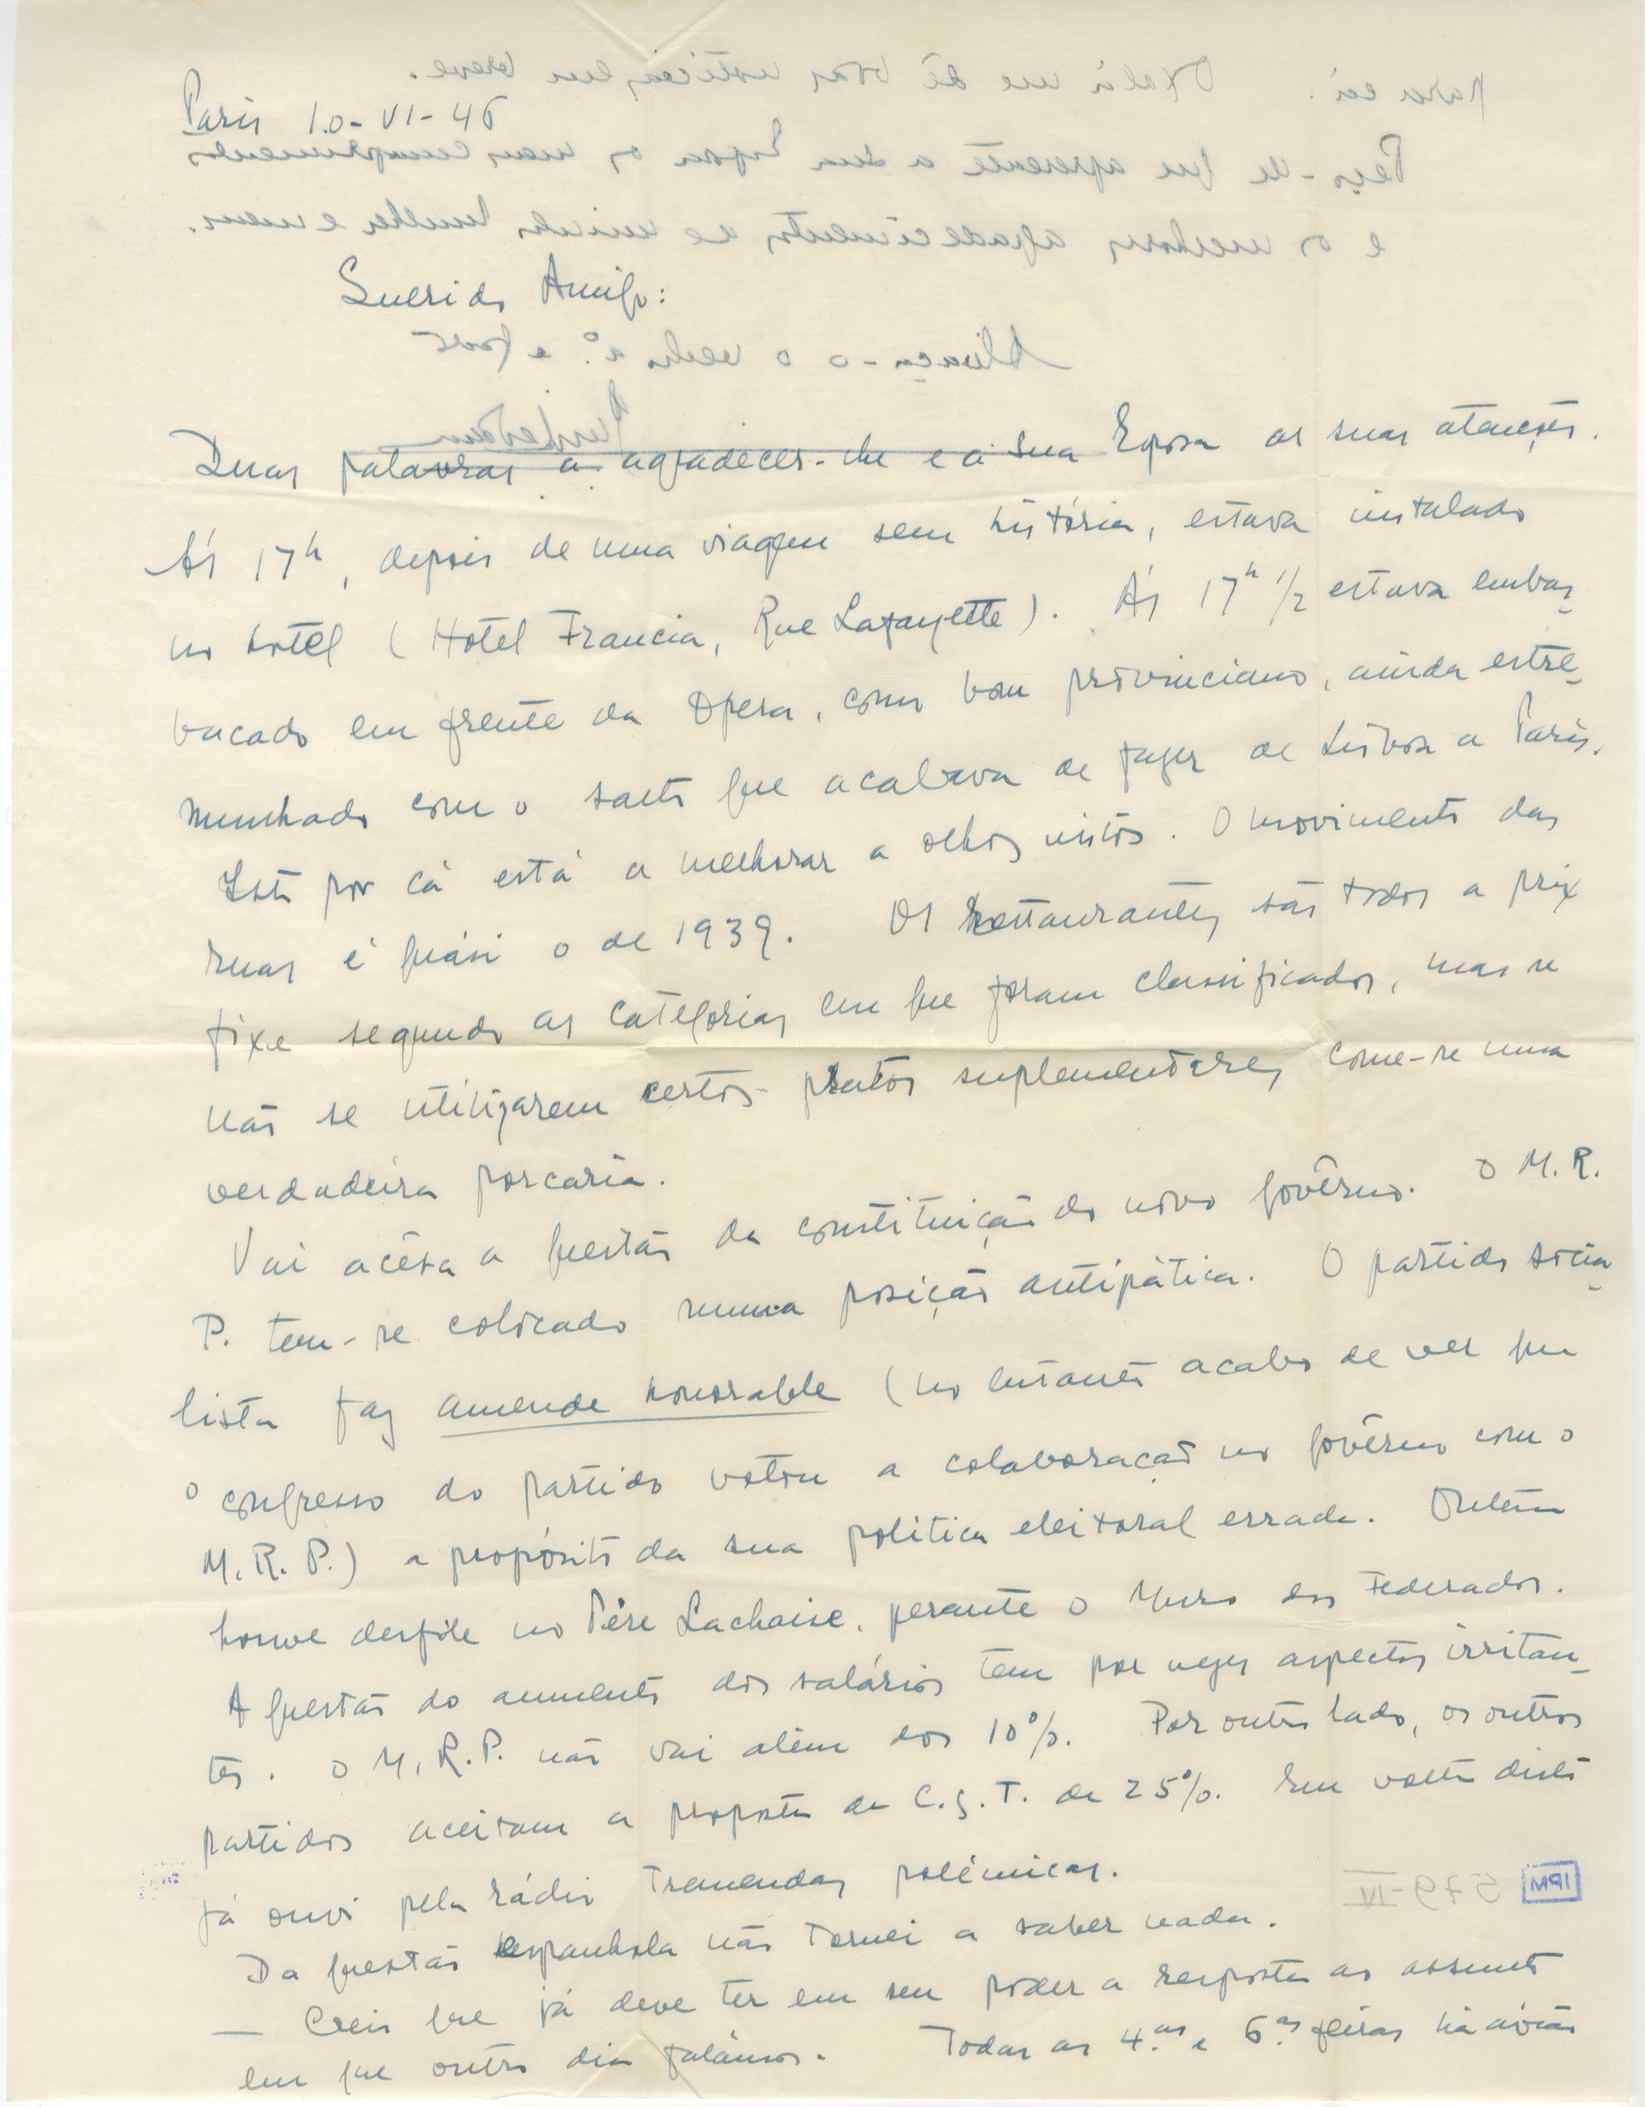 Paris 10-VI-46
Querido Amigo:
Duas palavras a agradecer-lhe e a sua Esposa as suas atenções.
Ás 17h, depois de uma viagem sem história, estava instalado
no hotel (Hotel Francia, Rue Lafayette). Ás 17h 1/2 estava embas-
bacado em frente da Opera, como bom provinciano, ainda estre-
munhado com o salto que acabava de fazer de Lisboa a Paris.
Isto por cá está a melhorar a olhos vistos. O movimento das
ruas é quási o de 1939. Os restaurantes são todos a prix
fixe segundo as categorias em que foram classificados, mas se
não se utilizarem certos pratos suplementares, come-se uma
verdadeira porcaria.
Vai acêsa a questão da constituição do novo govêrno. O M.R.
P. tem-se colocado numa posição antipática. O partido socia-
lista faz amende honorable (no entanto acabo de ver que
o congresso do partido votou a colaboração no govêrno com o
M.R.P.) a propósito da sua politica eleitoral errada. Ontem
houve desfile no Père Lachaise, perante o Muro dos Federados.
A questão do aumento dos salários tem por vezes aspectos irritan-
tes. O M.R.P. não vai além dos 10%. Por outro lado, os outros
partidos aceitam a proposta da C.G.T. de 25%. Em volta disto
já ouvi pela rádio tremendas polémicas.
Da questão espanhola não tornei a saber nada.
— Creio que já deve ter em seu poder a resposta ao assunto
em que outro dia falámos. Todas as 4.as e 6.as feiras há avião
para cá. Oxalá me dê boas notícias em breve.
Peço-lhe que apresente a sua Esposa os meus cumprimentos
e os melhores agradecimentos de minha mulher e meus.
Abraça-o o velho a.º e grato
579-IV
IPM